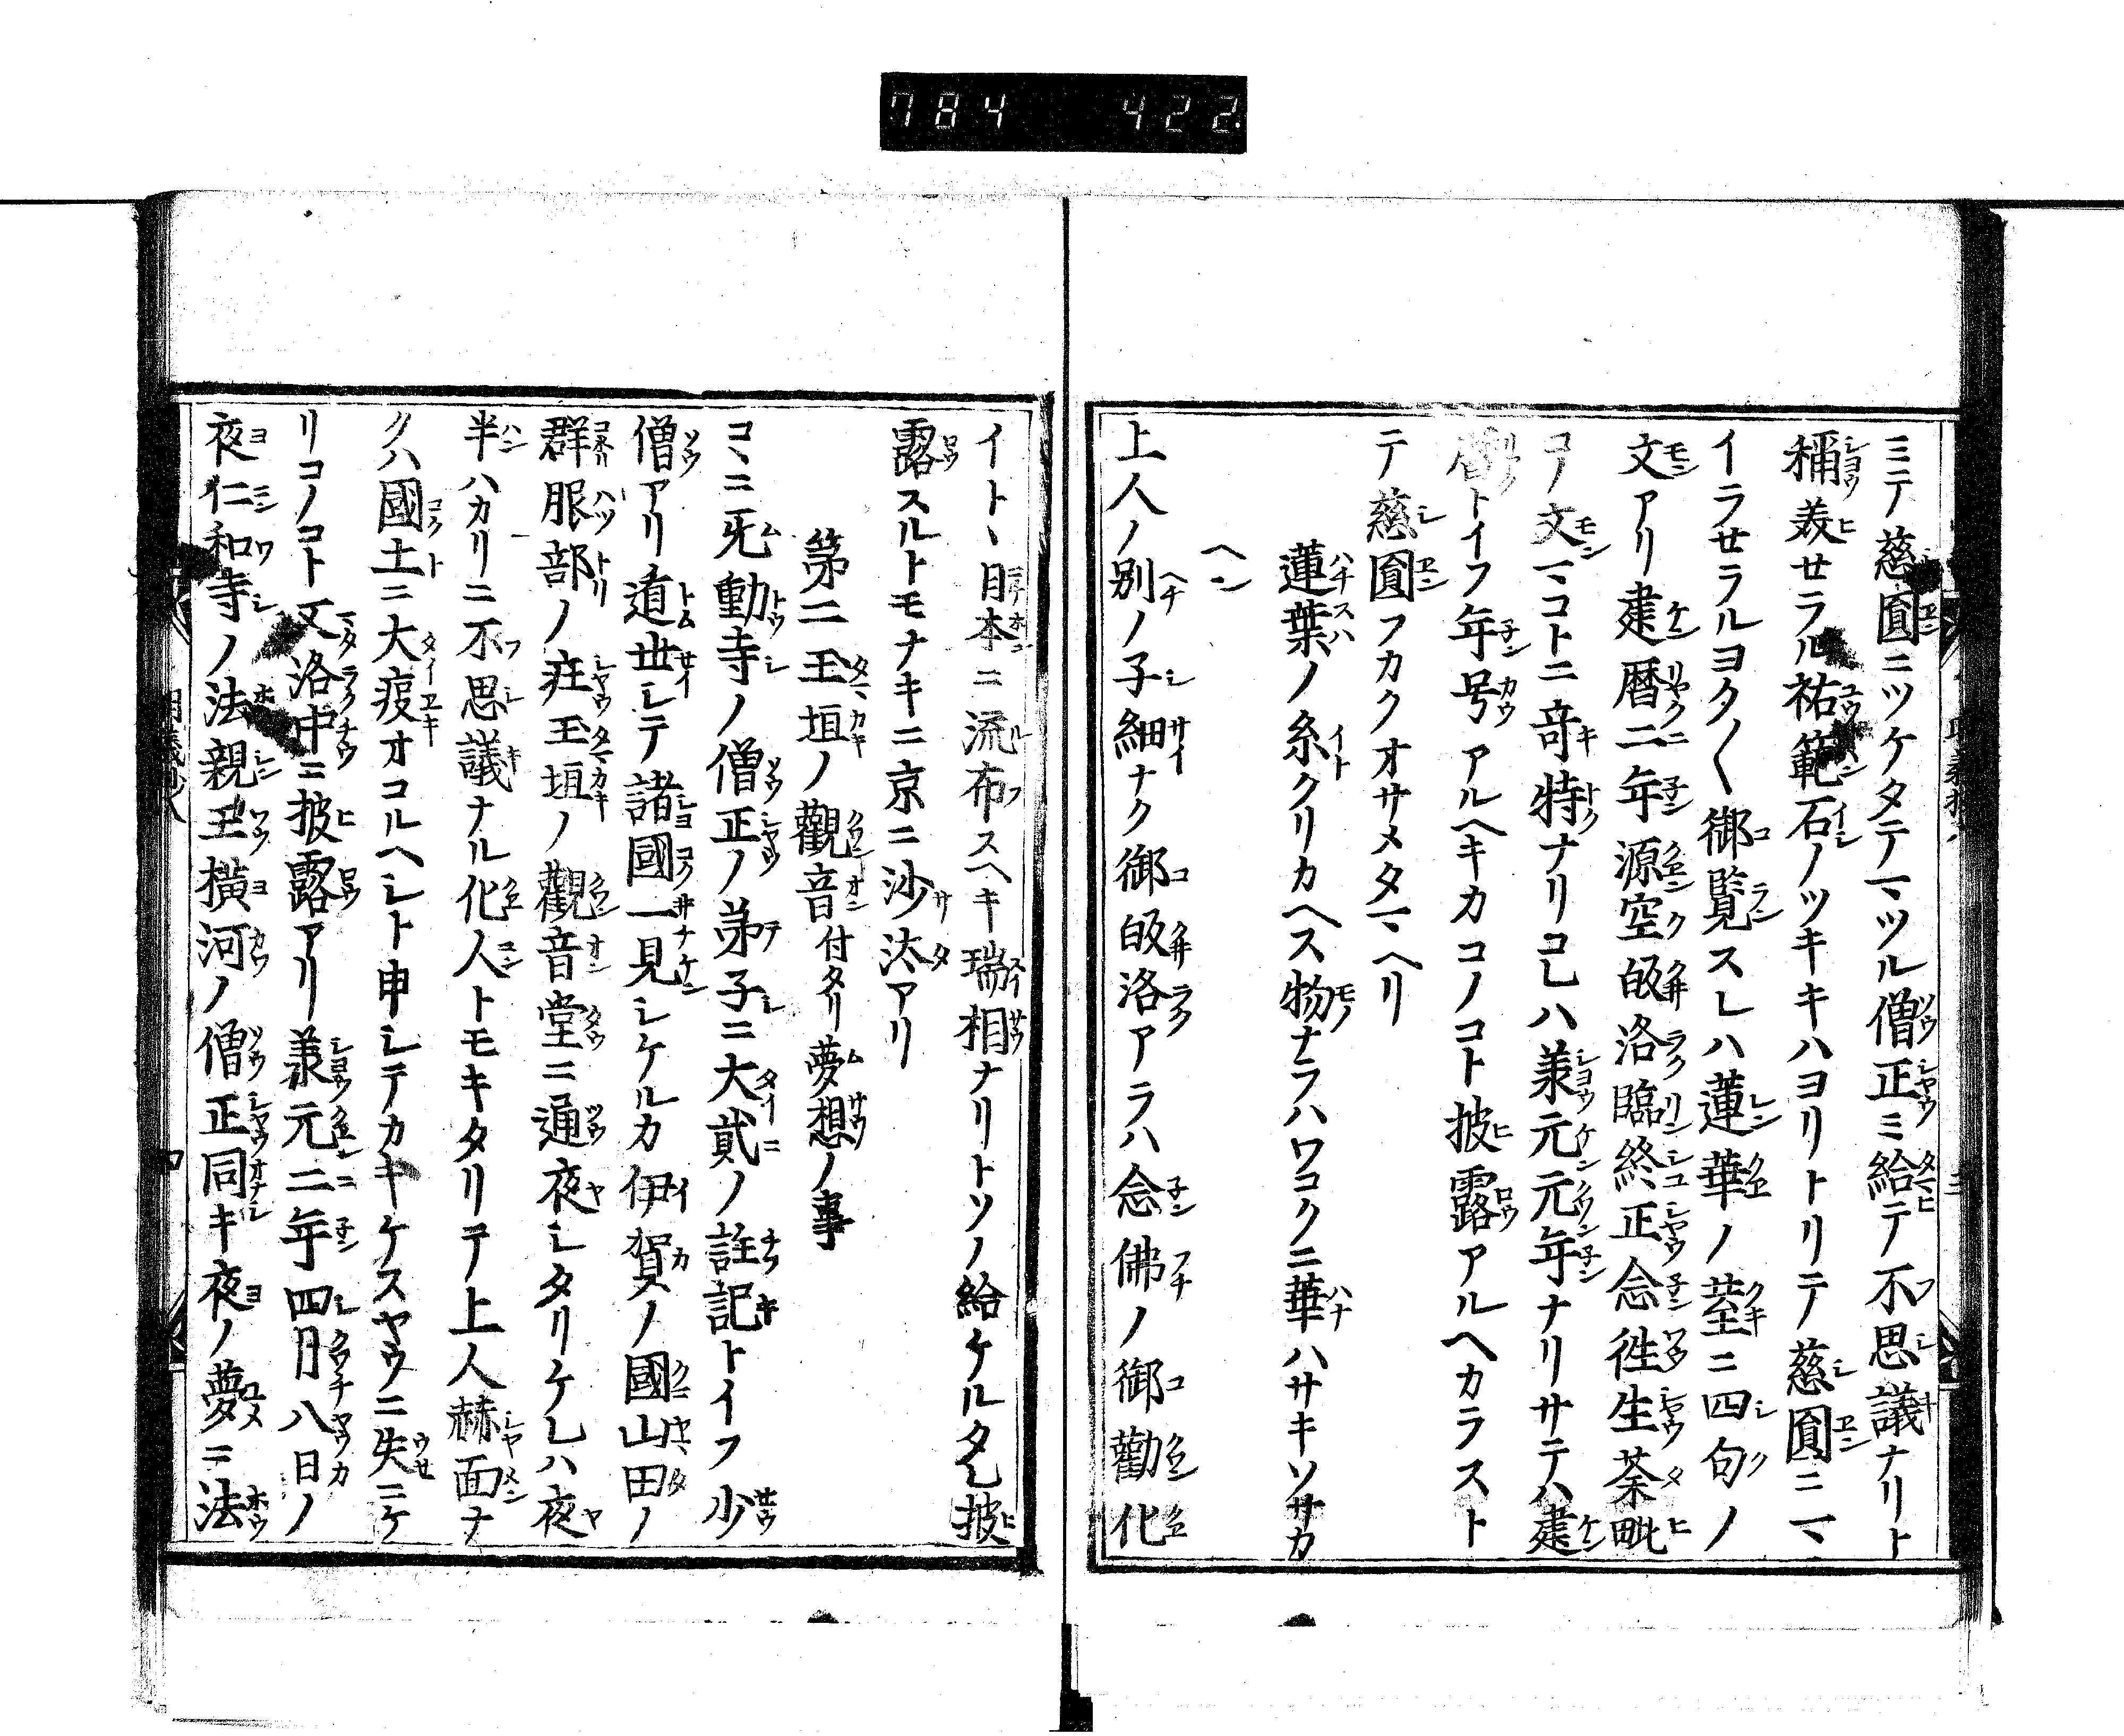 784 422.
ミテ慈圓ニツケタテマツル僧正ミ給テ不思議ナリト
稱美セラル祐範石ノツキキハヨリトリテ慈圓ニマ
イラセラルヨク〱御覧スレハ蓮華ノ莖ニ四句ノ
文アリ建暦二年源空皈洛臨終正念徃生荼毗
コノ文マコトニ竒特ナリコレハ兼元元年ナリサテハ建
暦トイフ年号アルヘキカコノコト披露アルヘカラスト
テ慈圓フカクオサメタマヘリ
蓮葉ノ糸クリカヘス物ナラハワコクニ華ハサキソサカ
ヘン
上人ノ別ノ子細ナク御皈洛アラハ念佛ノ御勸化
イトヽ日本ニ流布スヘキ瑞相ナリトソノ給ケルタレ披
露スルトモナキニ京ニ沙汰アリ
第二玉垣ノ觀音付タリ夢想ノ事
コヽニ旡動寺ノ僧正ノ弟子ニ大貳ノ註記トイフ少
僧アリ遁世シテ諸國一見シケルカ伊賀ノ國山田ノ
群服部ノ庄玉垣ノ觀音堂ニ通夜シタリケレハ夜
半ハカリニ不思議ナル化人トモキタリテ上人赫面ナ
クハ國土ニ大疫オコルヘシト申シテカキケスヤウニ失ニケ
リコノコト又洛中ニ披露アリ兼元二年四月八日ノ
夜仁和寺ノ法親王横河ノ僧正同キ夜ノ夢ニ法